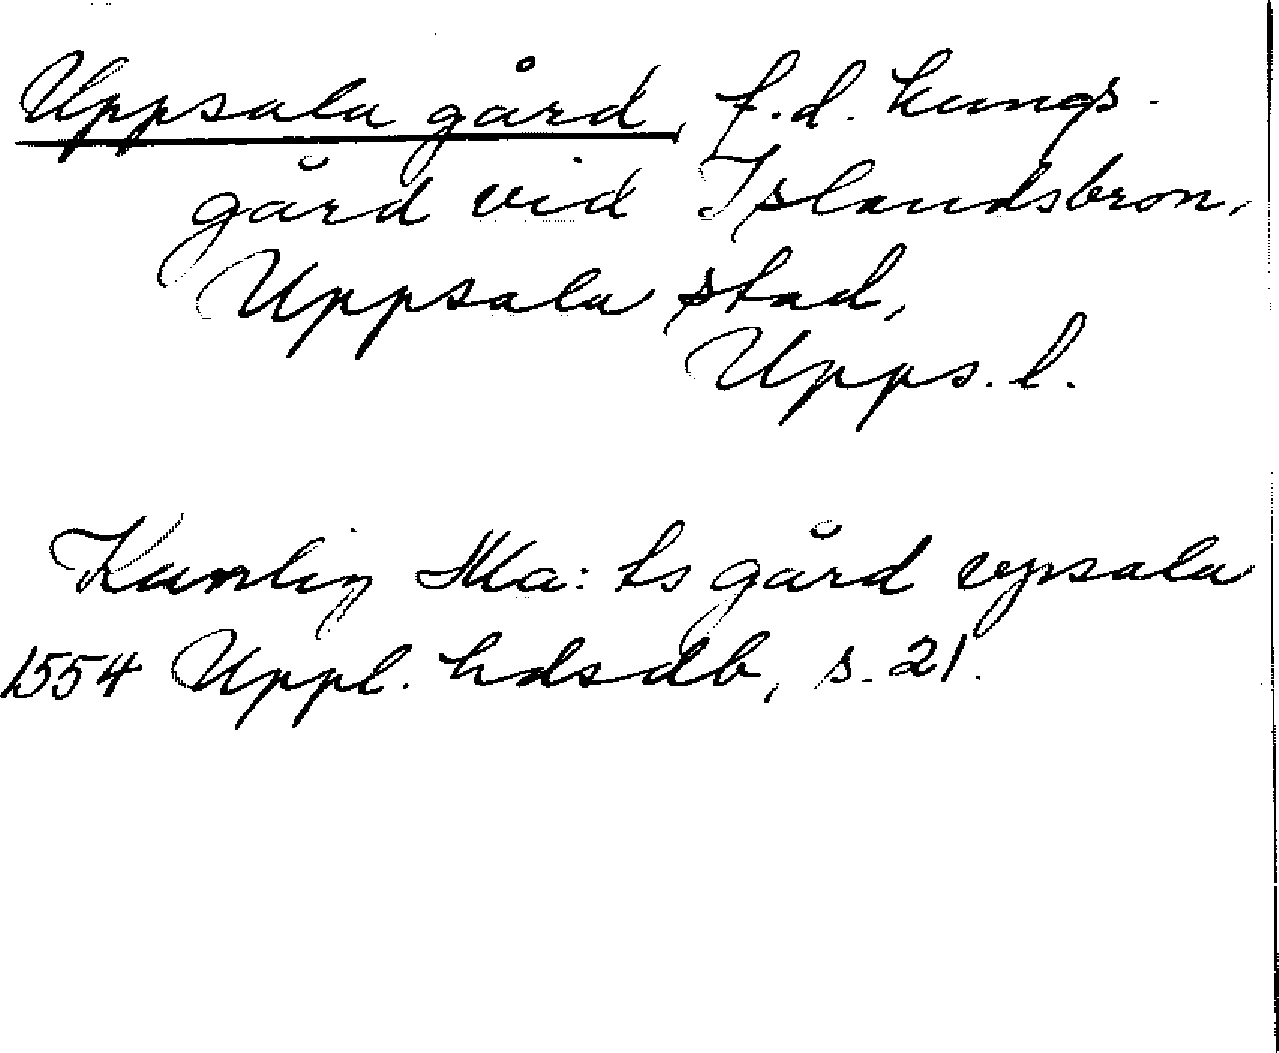 Uppsala gård, f.d. kungs-
gård vid Islandsbron,
Uppsala stad,
Upps. l.
Kunlig Ma:ts gård vpsala
1554 Uppl. hdsdb, s. 21.